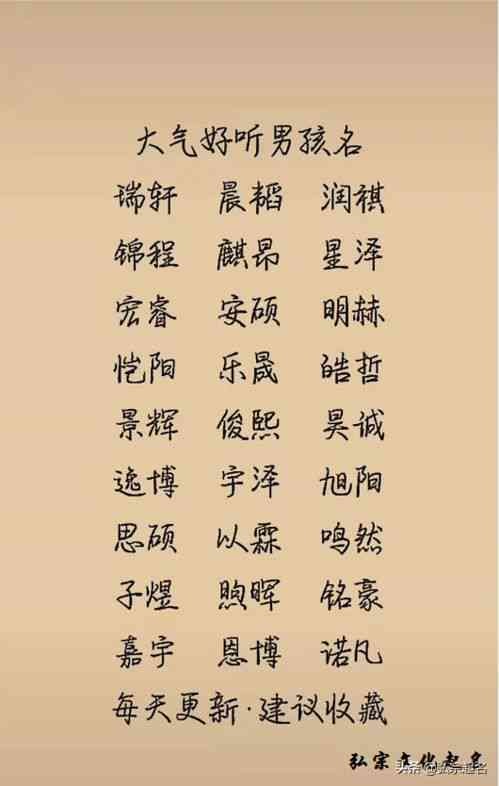 大气好听男孩名
瑞轩 晨韬 润祺
锦程 麒昂 星泽
宏睿 安硕 明赫
恺阳 乐晟 皓哲
景辉 俊熙 昊诚
逸博 宇泽 旭阳
思硕 以霖 鸣然
子煜 煦晖 铭豪
嘉宇 恩博 诺凡
每天更新·建议收藏
弘宗文化起名
头条@弘宗起名